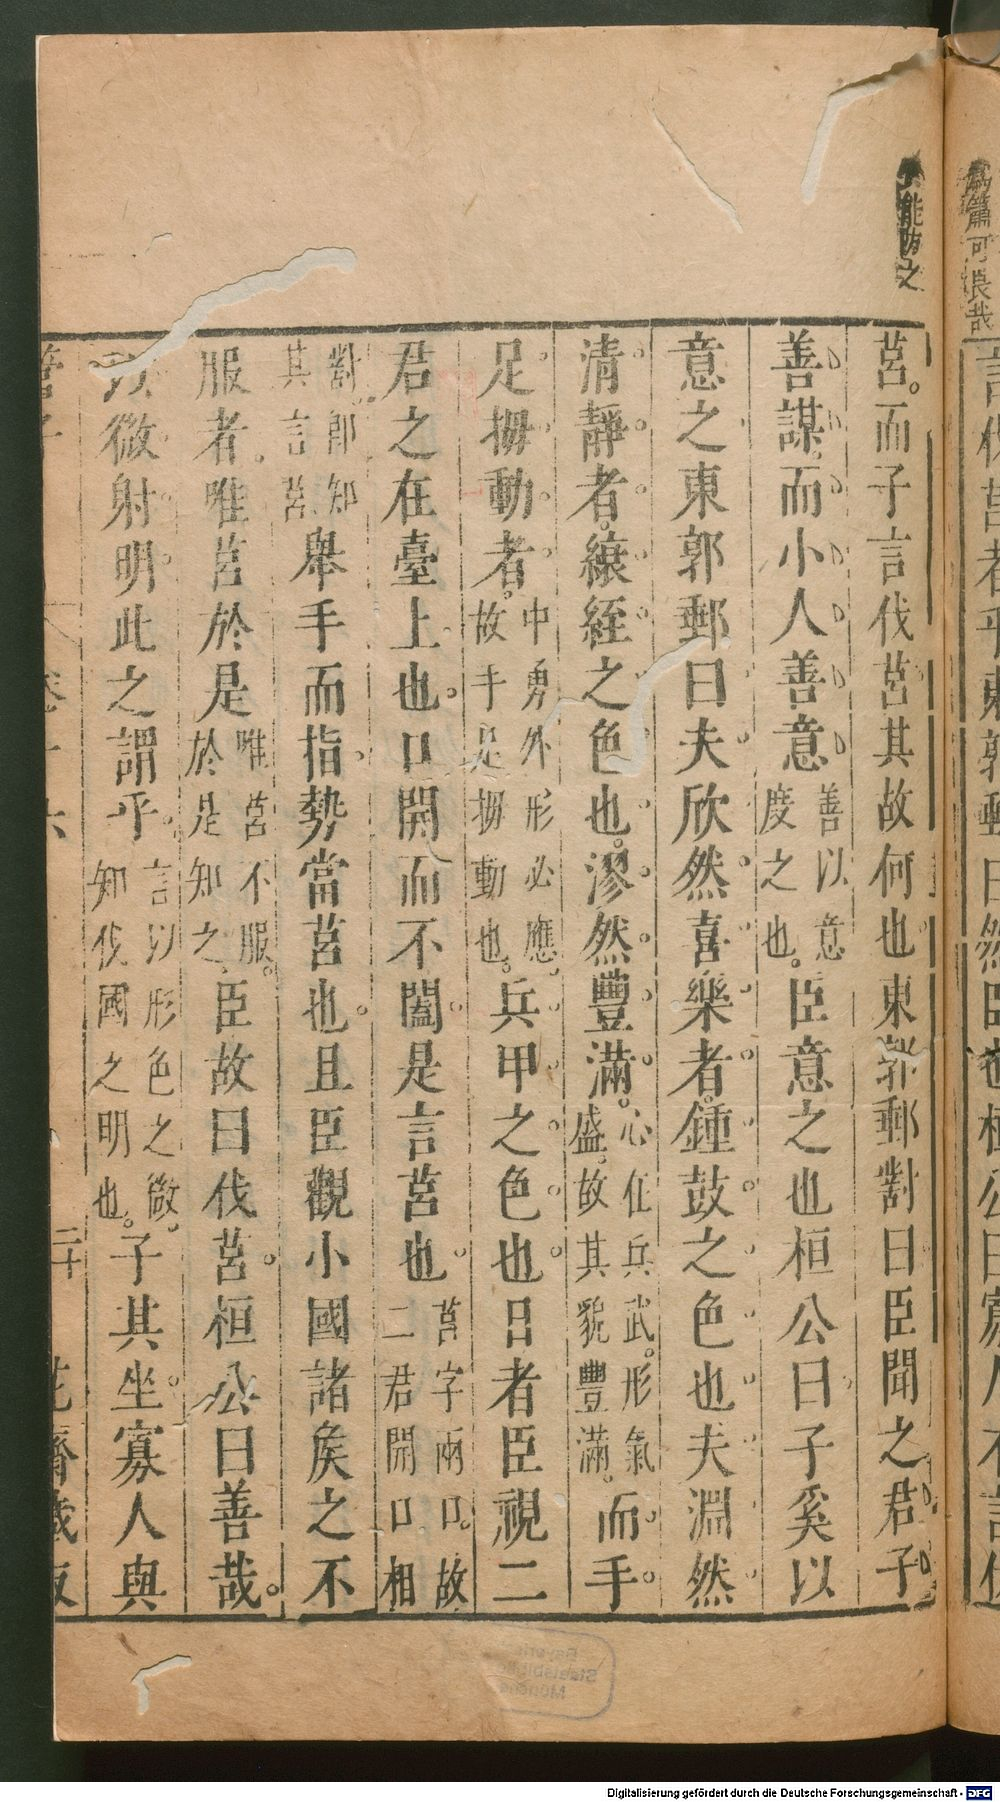 能防之
莒。而子言伐莒其故何也東郭郵對曰臣聞之君子
善謀。而小人善意善以意度之也。臣意之也桓公曰子奚以
意之東郭郵曰夫欣然喜樂者。鍾鼓之色也夫淵然
清靜者。縗絰之色也。漻然豐滿。心在兵武。形氣盛。故其貌豐滿。而手
足拇動者。中勇外形必應。故手足拇動也。兵甲之色也日者臣視二
君之在臺上也。口開而不闔是言莒也莒字兩口。故二君開口相
對。郭知其言莒舉手而指。勢當莒也且臣觀小國諸矦之不
服者。唯莒於是唯莒不服。於是知之。臣故曰伐莒。桓公曰善哉。
以微射明此之謂乎。言以形色之微。知伐國之明也。子其坐。寡人與
管子
二十
花齋藏版
篇可良哉
Digitalisierung gefördert durch die Deutsche Forschungsgemeinschaft - DFG